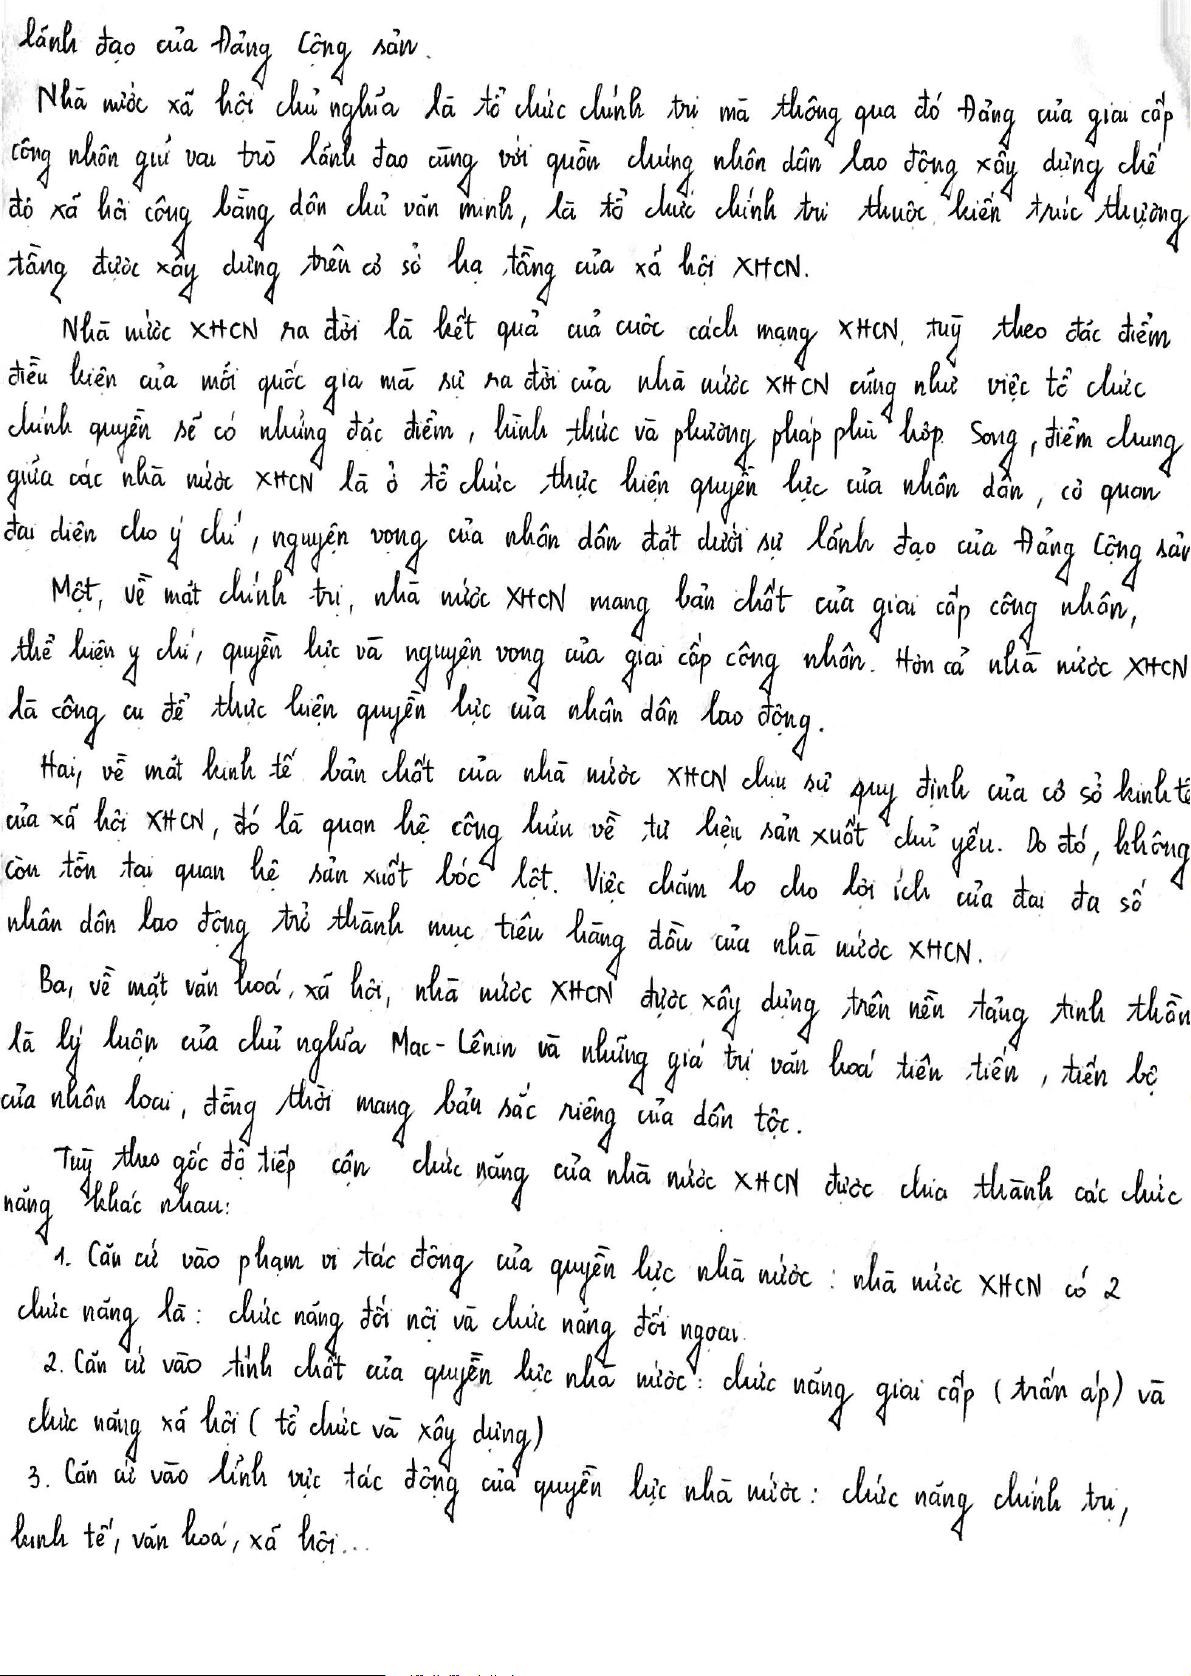 lãnh đạo của Đảng Cộng sản.
Nhà nước xã hội chủ nghĩa là tổ chức chính trị mà thông qua đó Đảng của giai cấp
công nhân giữ vai trò lãnh đạo cùng với quần chúng nhân dân lao động xây dựng chế
độ xã hội công bằng dân chủ văn minh, là tổ chức chính trị thuộc kiến trúc thượng
tầng được xây dựng trên cơ sở hạ tầng của xã hội XHCN.
Nhà nước XHCN ra đời là kết quả của cuộc cách mạng XHCN, tuỳ theo đặc điểm
điều kiện của mỗi quốc gia mà sự ra đời của nhà nước XHCN cũng như việc tổ chức
chính quyền sẽ có những đặc điểm, hình thức và phương pháp phù hợp. Song, điểm chung
giữa các nhà nước XHCN là ở tổ chức thực hiện quyền lực của nhân dân, cơ quan
đại diện cho ý chí, nguyện vọng của nhân dân đặt dưới sự lãnh đạo của Đảng Cộng sản
Một, về mặt chính trị, nhà nước XHCN mang bản chất của giai cấp công nhân,
thể hiện ý chí, quyền lực và nguyện vọng của giai cấp công nhân. Hơn cả nhà nước XHCN
là công cụ để thực hiện quyền lực của nhân dân lao động.
Hai, về mặt kinh tế bản chất của nhà nước XHCN chịu sự quy định của cơ sở kinh tế
của xã hội XHCN, đó là quan hệ công hữu về tư liệu sản xuất chủ yếu. Do đó, không
còn tồn tại quan hệ sản xuất bóc lột. Việc chăm lo cho lợi ích của đại đa số
nhân dân lao động trở thành mục tiêu hàng đầu của nhà nước XHCN.
Ba, về mặt văn hoá, xã hội, nhà nước XHCN được xây dựng trên nền tảng tinh thần
là lý luận của chủ nghĩa Mac-Lênin và những giá trị văn hoá tiên tiến, tiến bộ
của nhân loại, đồng thời mang bản sắc riêng của dân tộc.
Tuỳ theo góc độ tiếp cận chức năng của nhà nước XHCN được chia thành các chức
năng khác nhau:
1. Căn cứ vào phạm vi tác động của quyền lực nhà nước: nhà nước XHCN có 2
chức năng là: chức năng đối nội và chức năng đối ngoại.
2. Căn cứ vào tính chất của quyền lực nhà nước: chức năng giai cấp (trấn áp) và
chức năng xã hội (tổ chức và xây dựng)
3. Căn cứ vào lĩnh vực tác động của quyền lực nhà nước: chức năng chính trị,
kinh tế, văn hoá, xã hội...